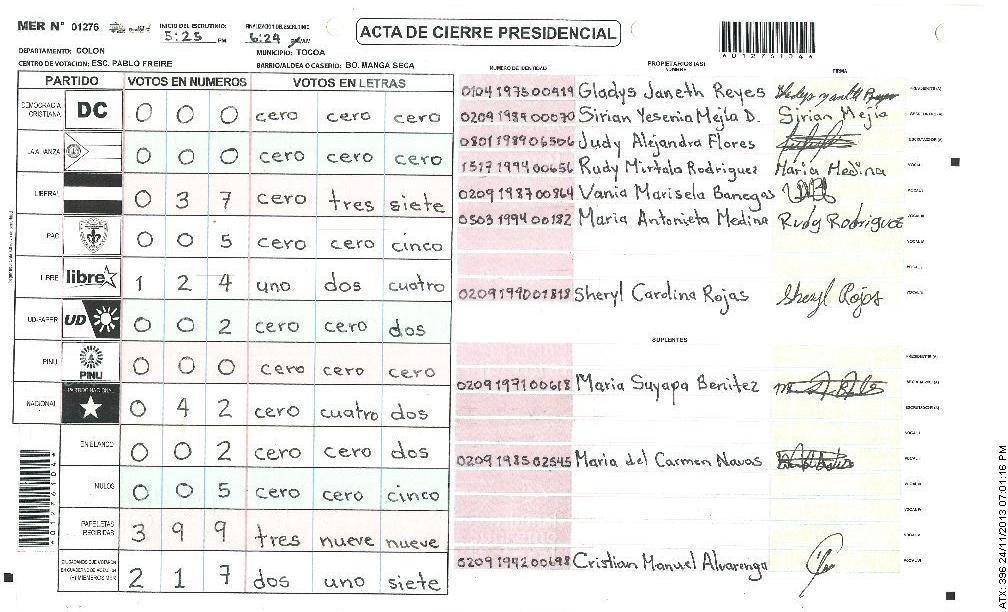 MER N° 01276
INICIO DEL ESCRUTINIO:
5:25 PM
FINALIZACION DEL ESCRUTINIO:
6:24
ACTA DE CIERRE PRESIDENCIAL
DEPARTAMENTO: COLON
MUNICIPIO: TOCOA
CENTRO DE VOTACION: ESC. PABLO FREIRE
BARRIO/ALDEA O CASERIO: BO. MANGA SECA
PARTIDO VOTOS EN NUMEROS VOTOS EN LETRAS
DEMOCRACIA CRISTIANA DC 0 0 0 cero cero cero
LA ALIANZA 0 0 0 cero cero cero
LIBERAL 0 3 7 cero tres siete
PAC 0 0 5 cero cero cinco
LIBRE libre 1 2 4 uno dos cuatro
UD-FAPER UD 0 0 2 cero cero dos
PINU PINU 0 0 0 cero cero cero
NACIONAL PARTIDO NACIONAL 0 4 2 cero cuatro dos
EN BLANCO 0 0 2 cero cero dos
NULOS 0 0 5 cero cero cinco
PAPELETAS RECIBIDAS 3 9 9 tres nueve nueve
2 1 7 dos uno siete
NUMERO DE IDENTIDAD PROPIETARIOS (AS) NOMBRE FIRMA
0104197500419 Gladys Janeth Reyes PRESIDENTE (A)
0209198900070 Sirian Yesenia Mejia D. Sirian Mejia
0801198906506 Judy Alejandra Flores ESCRUTADOR (A)
1517199400656 Rudy Mirtala Rodriguez Maria Medina
0209198700864 Vania Marisela Banegas
0503199400182 Maria Antonieta Medina Rudy Rodriguez
0209199001818 Sheryl Carolina Rojas Sheryl Rojas
SUPLENTES
PRESIDENTE (A)
0209197100618 Maria Suyapa Benitez
ESCRUTADOR (A)
0209198502545 Maria del Carmen Navas
0209199200698 Cristian Manuel Alvarenga
ATX: 396 24/11/2013 07:01:16 PM